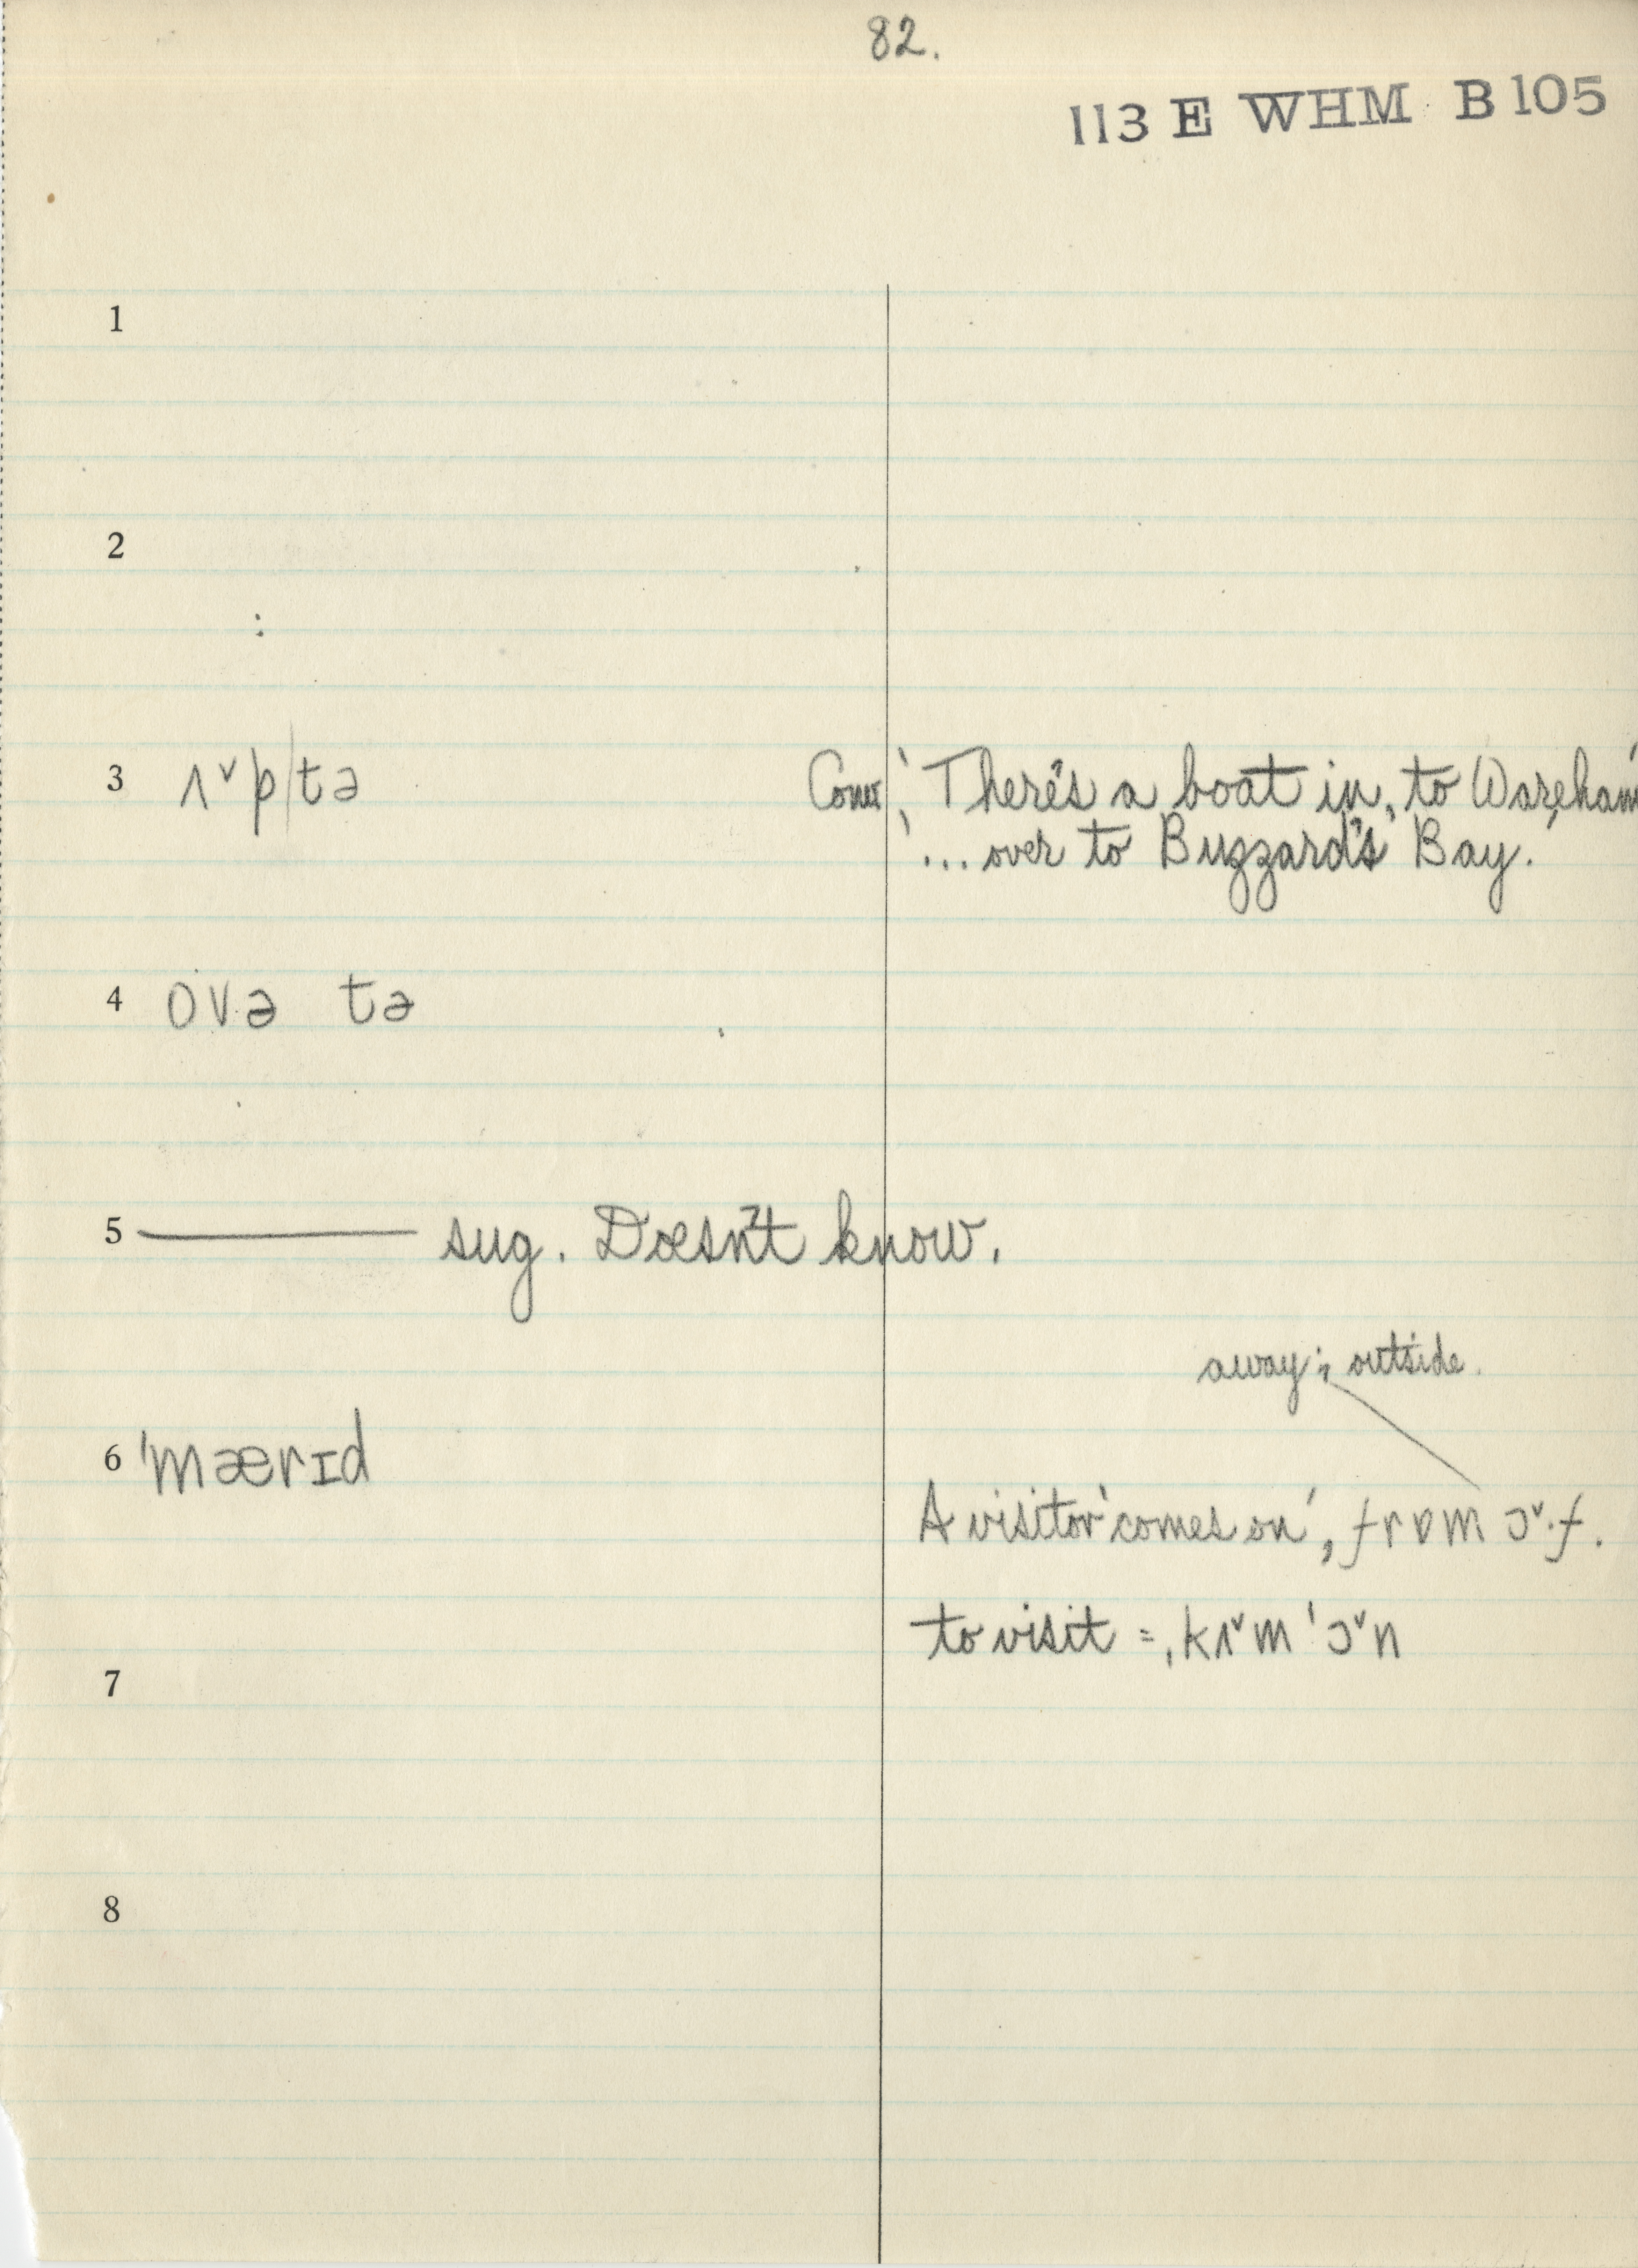 82.
113 E WHM B 105
1
2
3 ʌ˅p|tə Conv. 'There's a boat in, to Wareham'
'... over to Buzzard's Bay.
4 ovə tə
5 ——— sug. Doesn't know.
away; outside.
6 ˈmærɪd
A visitor 'comes on', frɒm ɔ˅·f.
to visit = ˌkʌ˅m ˈɔ˅n
7
8